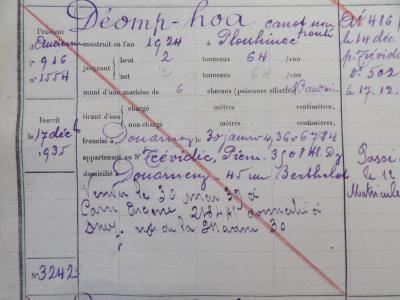 Déomp-hoa canot non ponté
Provient
Ancien
n° 916
n° 1554
construit en l'an 1924 à Plouhinec
jaugeant
brut 2 tonneaux 64 /100
net 2 tonneaux 64 /100
muni d'une machine de 6 chevaux (puissance effective)
tirant d'eau
chargé mètres centimètres,
non chargé mètres centimètres,
Inscrit
le 17 déc
1935
francisé à Douarnenez le 30 janv 36 n° 6784
appartenant au Sr Trévidic, Pierre 3508 Dz
domicilié Douarnenez - 45 rue Berthelot
Vendu le 30 mai 39 à
Cam Eugène domicilié à
Dnez rue de la 30
N° 3242
le 14 déc
p. Trévidic
n° 502
17.12.
Passé
le 12
Matricule